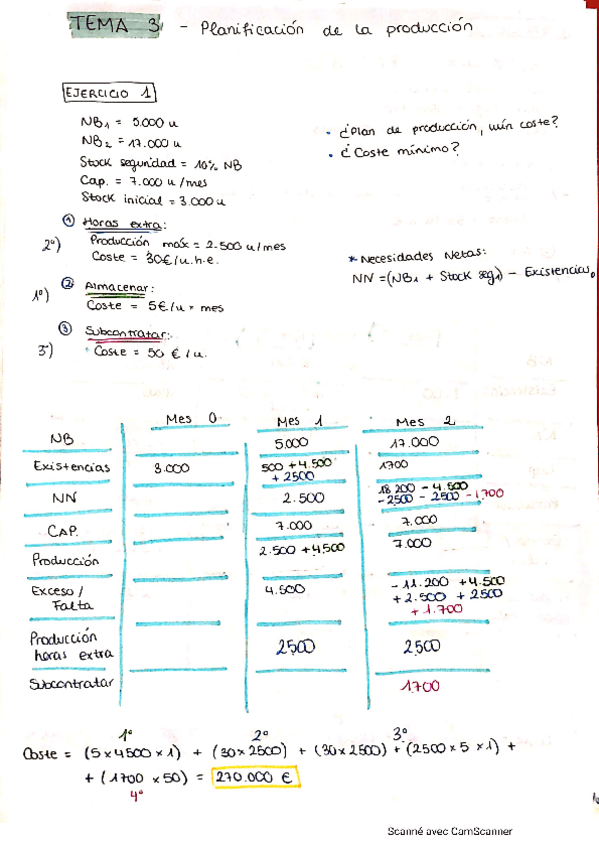 TEMA 3 - Planificación de la producción
EJERCICIO 1
NB1 = 5.000 u
NB2 = 17.000 u
Stock seguridad = 10% NB
Cap. = 7.000 u / mes
Stock inicial = 3.000 u
· ¿Plan de producción, mín coste?
· ¿Coste mínimo?
① Horas extra:
2º) Producción máx = 2.500 u/mes
Coste = 30€/u.h.e.
② Almacenar:
1º) Coste = 5€/u * mes
③ Subcontratar:
3º) Coste = 50 €/u.
* Necesidades Netas:
NN = (NB1 + Stock seg1) - Existencias0
Mes 0 Mes 1 Mes 2
NB 5.000 17.000
Existencias 3.000 500 + 4.500 1700
+ 2500
NN 2.500 18.200 - 4.500
- 2500 - 2500 - 1.700
CAP. 7.000 7.000
Producción 2.500 + 4,500 7.000
Exceso / Falta 4.500 - 11.200 + 4.500
+ 2.500 + 2500
+ 1.700
Producción horas extra 2500 2500
Subcontratar 1700
1º 2º 3º
Coste = (5 x 4500 x 1) + (30 x 2500) + (30 x 2500) + (2500 x 5 x 1) +
+ (1700 x 50) = 270.000 €
4º
Scanné avec CamScanner